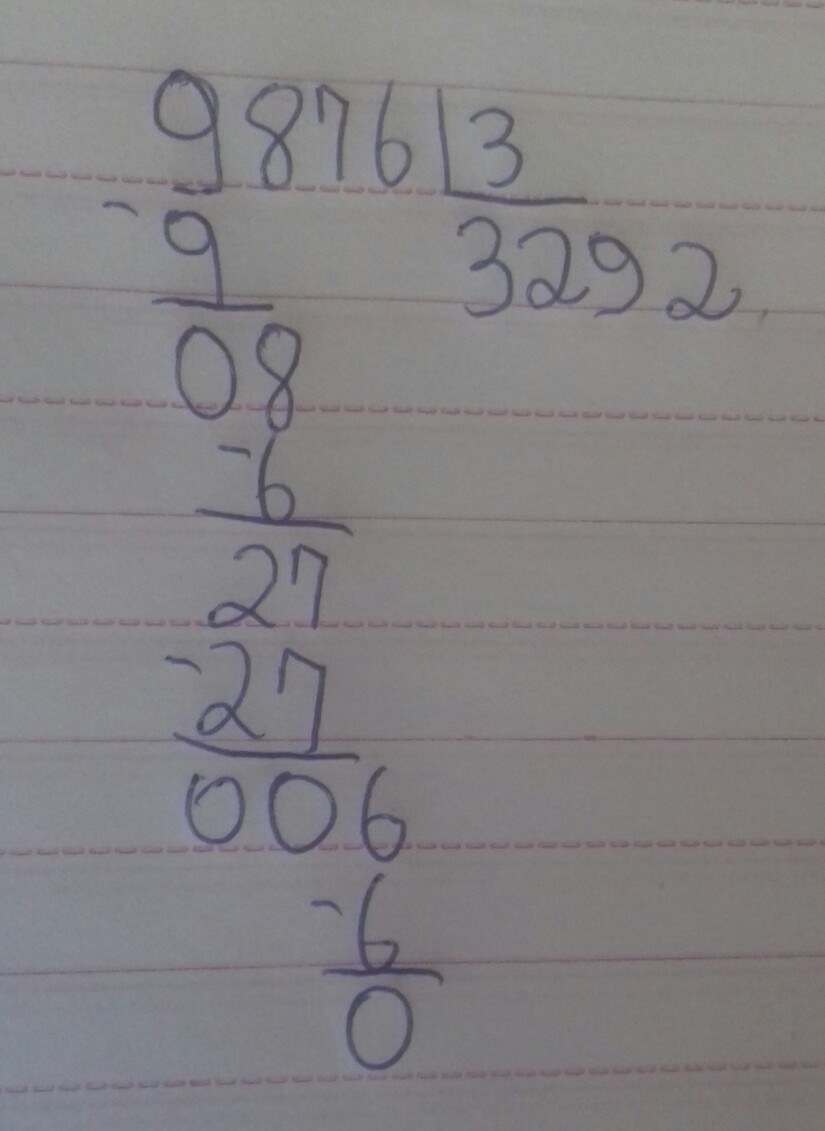 9876 3
-9 3292
08
-6
27
-27
006
-6
0